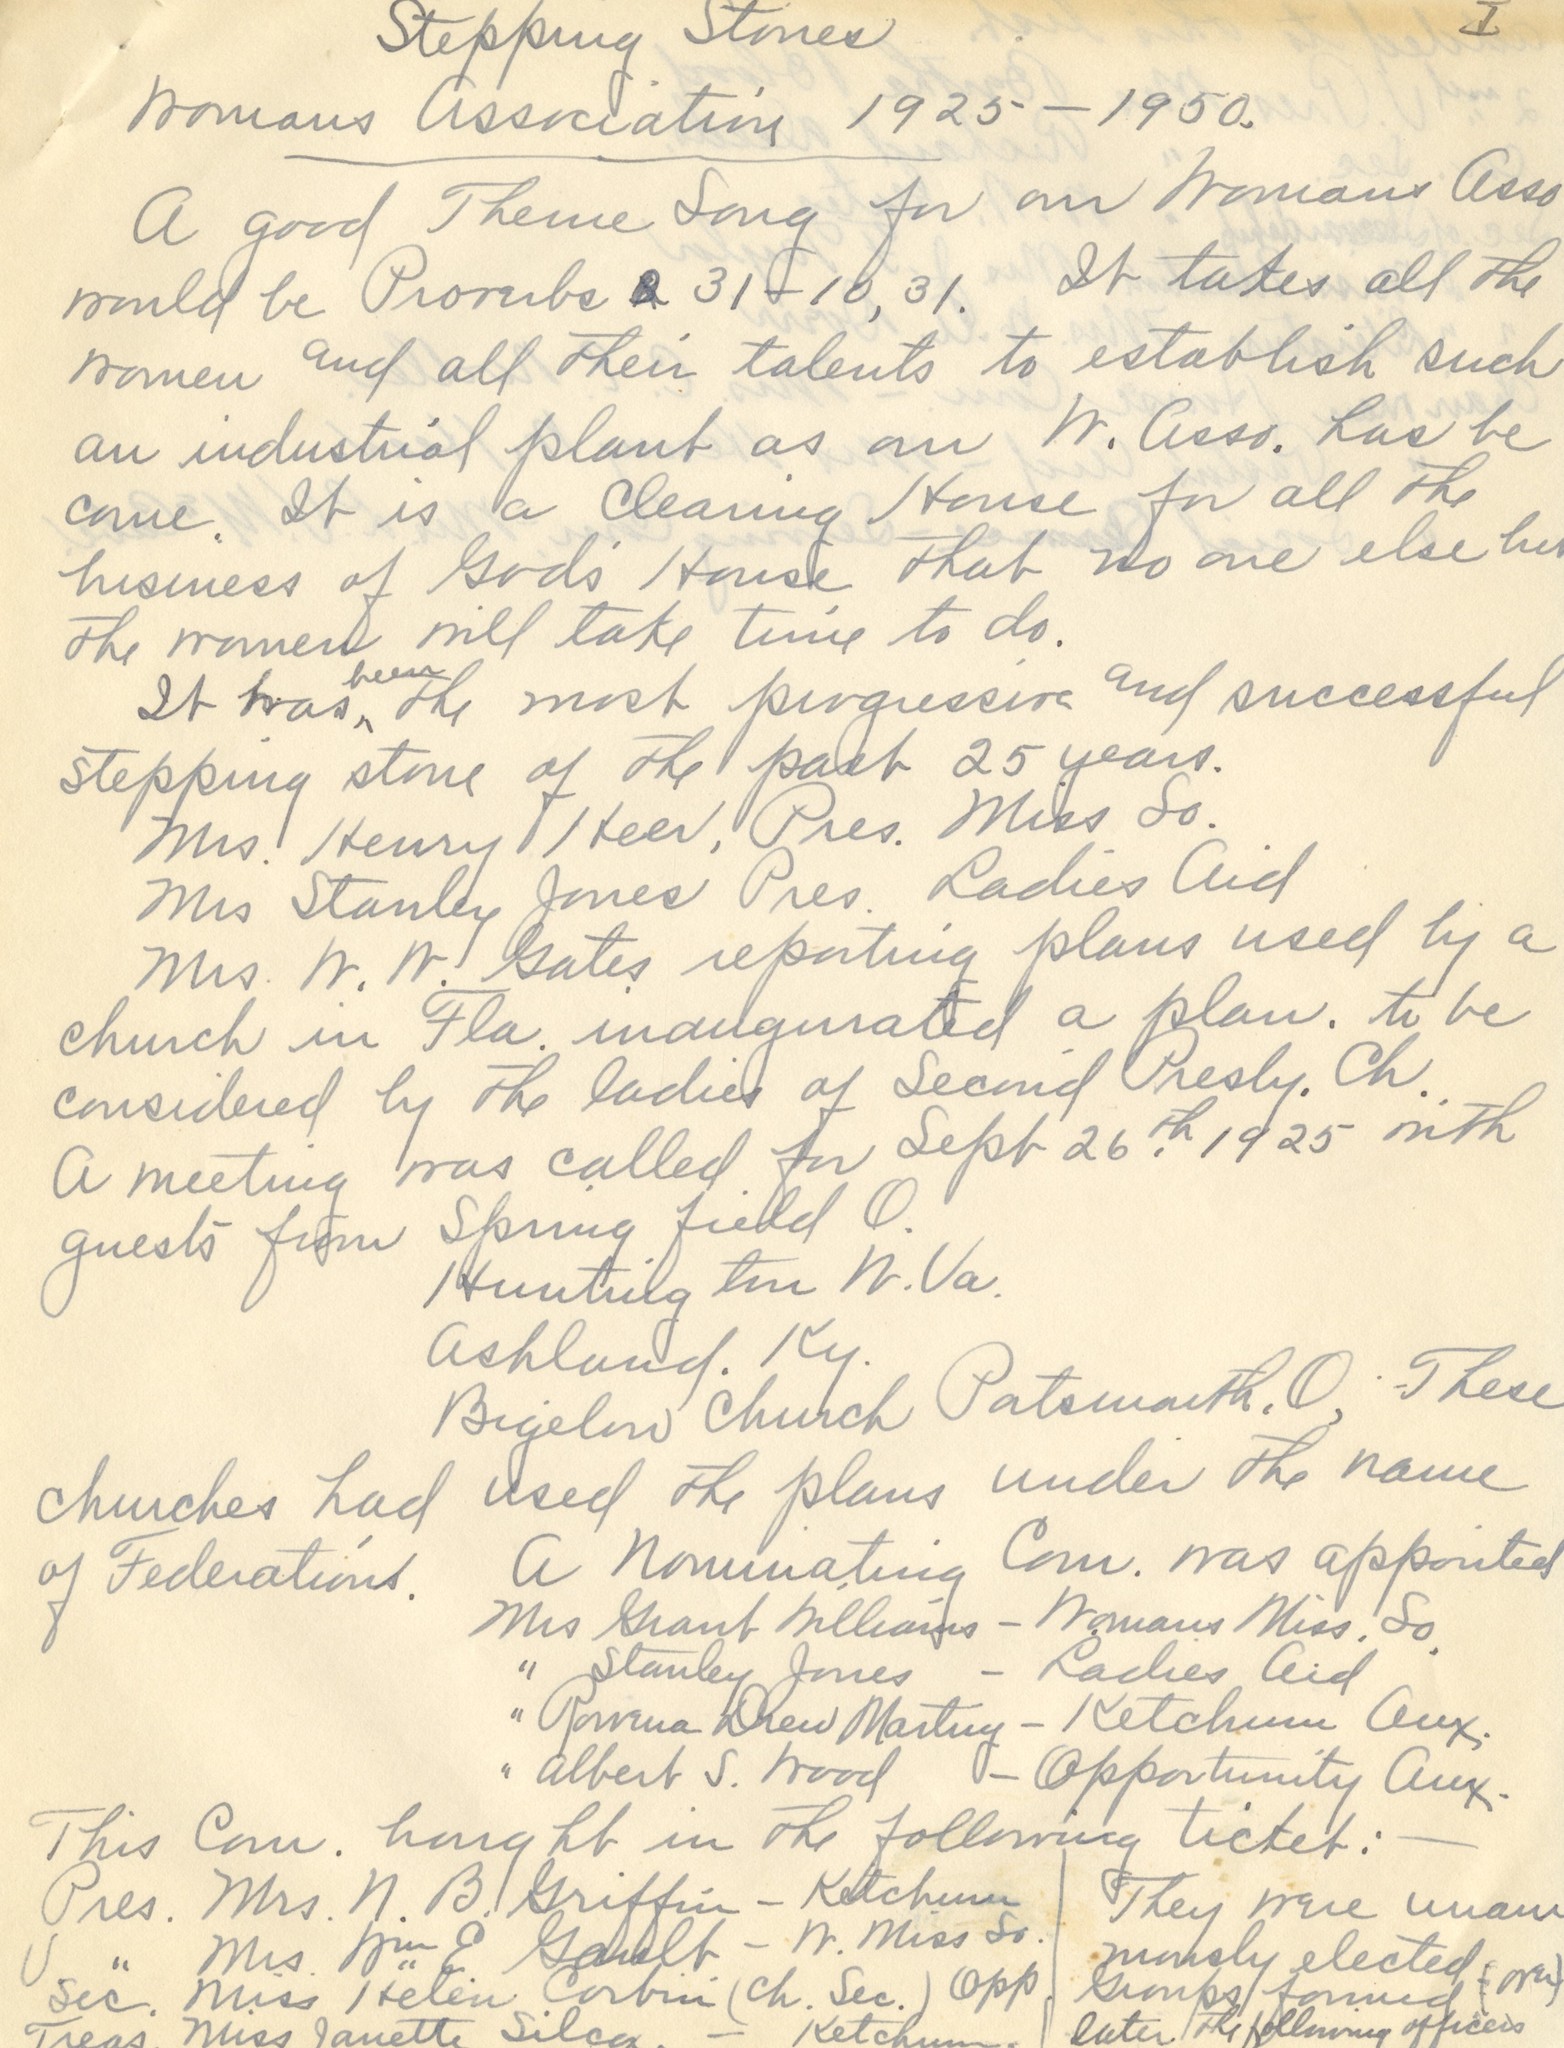 I
Stepping Stones
Womans Association 1925-1950.
A good Theme Song for our Womans Asso
would be Proverbs 31-10,31. It takes all the
women and all their talents to establish such
an industrial plant as our W. Asso. has be
come. It is a Clearing House for all the
business of God's House that no one else but
the women will take time to do.
It has been the most progressive and successful
stepping stone of the past 25 years.
Mrs. Henry Heer, Pres. Miss So.
Mrs Stanley Jones Pres. Ladies Aid
Mrs. W. W. Gates reporting plans used by a
church in Fla. inaugurated a plan. to be
considered by the ladies of Second Presby. Ch.
A meeting was called for Sept 26th 1925 with
guests from Springfield O.
Huntington W. Va.
Ashland. Ky.
Bigelow Church Portsmouth, O. These
churches had used the plans under the name
of Federations. A Nominating Com. was appointed
Mrs Grant Williams - Womans Miss. So.
" Stanley Jones - Ladies Aid
" Rowena Drew Marting - Ketchum Aux.
" Albert S. Wood - Opportunity Aux.
This Com. bought in the following ticket: -
Pres. Mrs. N. B. Griffin - Ketchum
V " Mrs. Wm E Gault - W. Miss So.
Sec. Miss Helen Corbin (Ch. Sec.) Opp.
Treas. Miss Janette - Ketchum.
They were unani
mously elected
Groups formed (over)
later the following officers